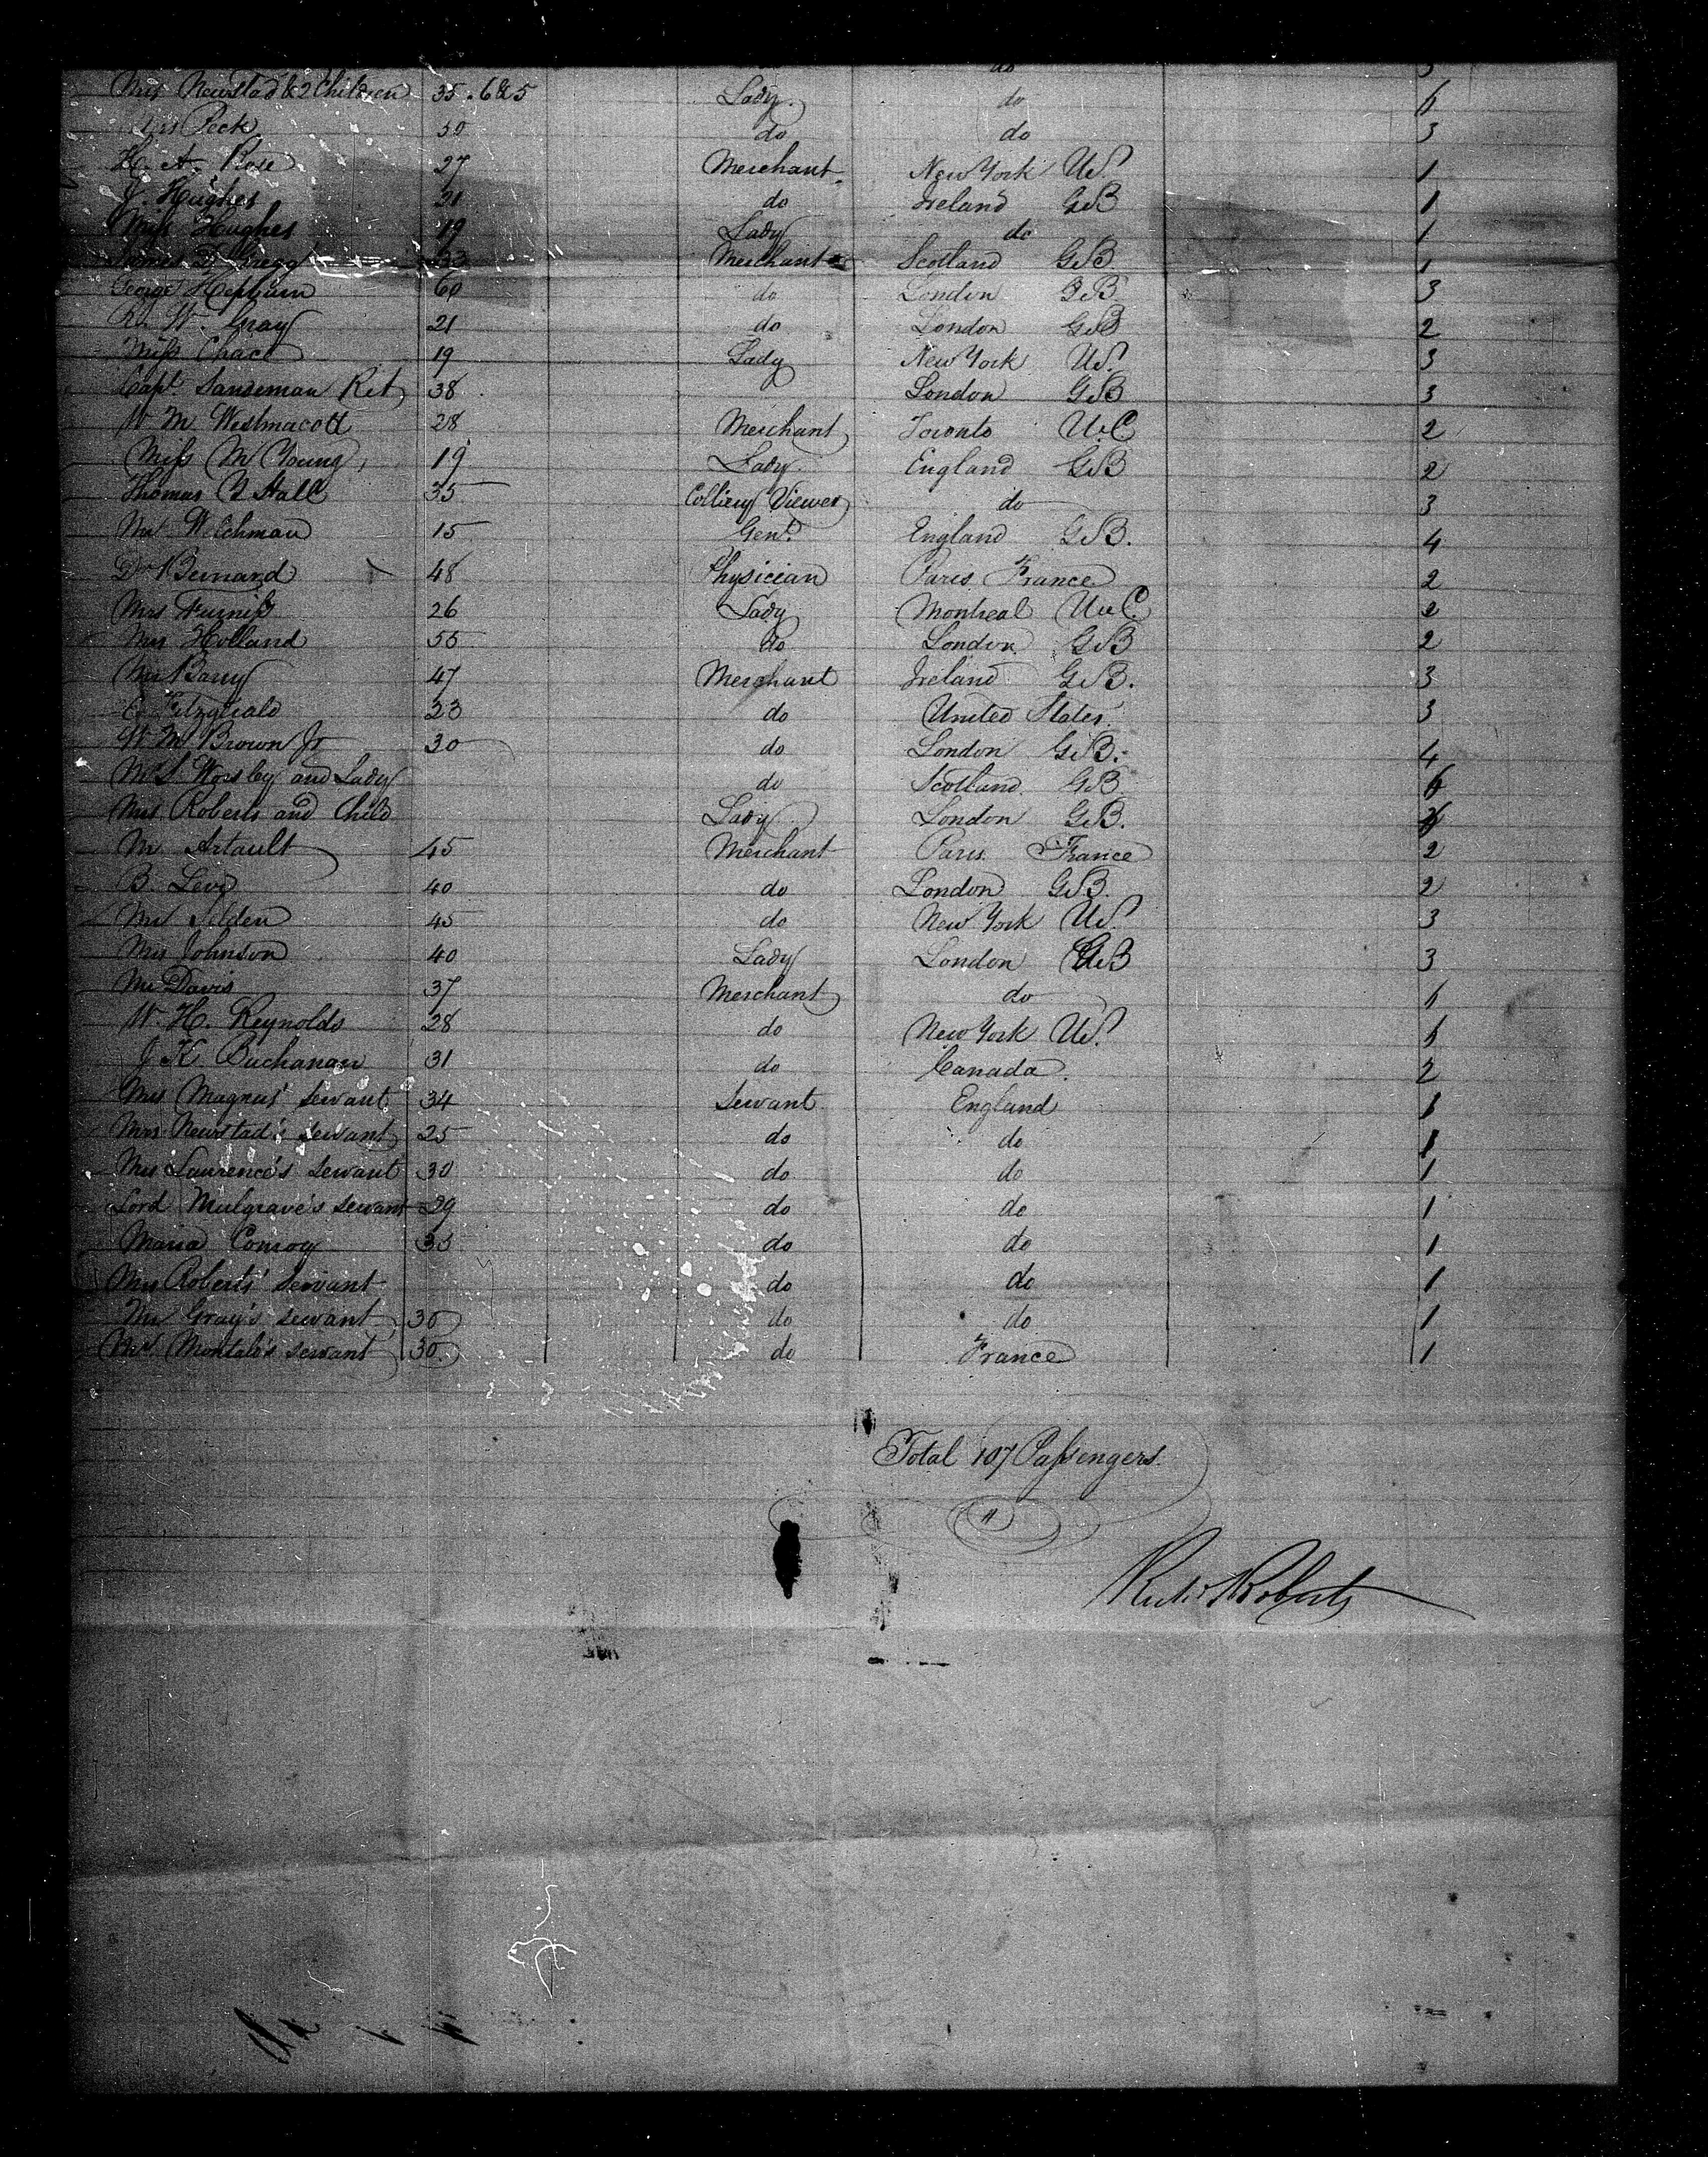 do 3
Mrs Newstad & 2 Children 35 . 6 & 5 Lady do 6
Mrs Peck 50 do do 3
H. A. Rose 27 Merchant New York U.S. 1
J. Hughes 21 do Ireland G.B 1
Miss Hughes 19 Lady do 1
James D Gregg 33 Merchant Scotland G.B 1
George Hepburn 60 do London G.B 3
W. Gray 21 do London G.B 2
Miss Chace 19 Lady New York U.S. 3
Capt. Sandeman Ret 38 London G.B 3
W M Westmacott 28 Merchant Toronto U.C 2
Miss M Young 19 Lady England G.B 2
Thomas Y Hall 35 Colliery Viewer do 3
Mr Welchman 15 Gent. England G.B. 4
Dr Bernard 48 Physician Paris France 2
Mrs Furniss 26 Lady Montreal U.C. 2
Mrs Holland 55 do London G.B 2
Mr Barry 47 Merchant Ireland G.B. 3
Fitzgerald 23 do United States. 3
W M Brown Jr 30 do London G.B. 4
Mr S. Worsley and Lady do Scotland G.B. 6
Mrs Roberts and Child Lady London G.B.
M Artault 45 Merchant Paris France 2
B. Levi 40 do London G.B. 2
Mr Alden 45 do New York U.S. 3
Mrs Johnson 40 Lady London G.B 3
Mr Davis 37 Merchant do
W. H. Reynolds 28 do New York U.S.
J K. Buchanan 31 do Canada. 2
Mrs Magnus' Servant 34 Servant England 1
Mrs Newstad's servant 25 do do 1
Mrs Laurence's Servant 30 do do 1
Lord Mulgrave's servant 29 do do 1
Maria Conroy 35 do do 1
Mrs Roberts' Servant do do 1
Mr Gray's servant 30 do do 1
Mr. Montalo's servant 30. do France 1
Total 107 Passengers.
Roberts